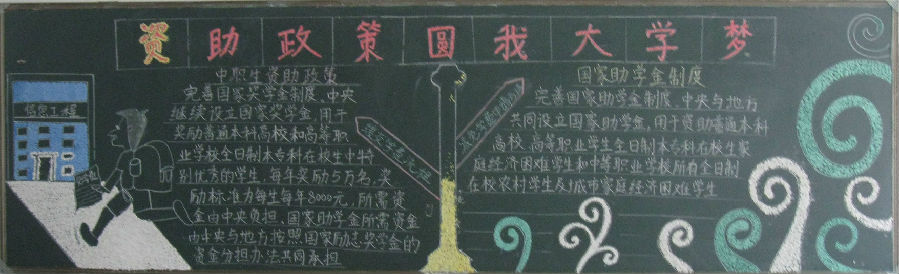 资助政策圆我大学梦
中职生资助政策
完善国家奖学金制度、中央
继续设立国家奖学金,用于
奖励普通本科高校和高等职
业学校全日制本专科在校生中特
别优秀的学生,每年奖励5万名,奖
励标准为每生每年8000元,所需资
金由中央负担,国家助学金所需资金
由中央与地方按照国家励志奖学金的
资金分担办法共同承担
信息工程
国家助学金制度
完善国家助学金制度,中央与地方
共同设立国家助学金,用于资助普通本科
高校、高等职业学生全日制本专科在校生家
庭经济困难学生和中等职业学校所有全日制
在校农村学生及城市家庭经济困难学生